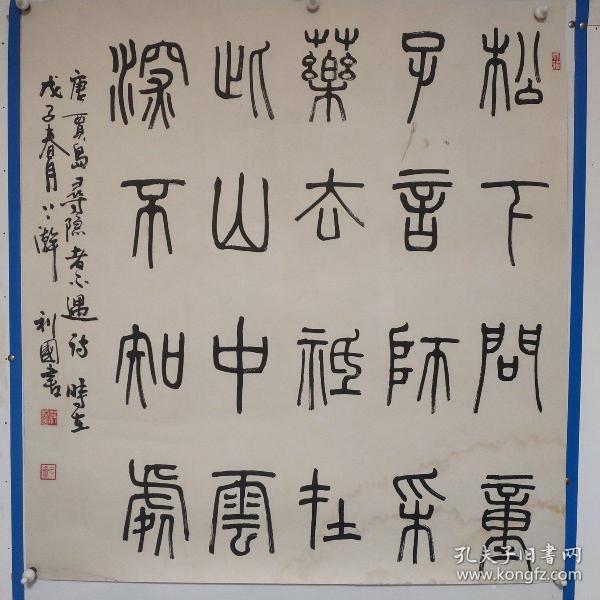 松下問童
子言師采
藥去祗在
此山中雲
深不知處
唐賈島尋隱者不遇詩 時在
戊子春月
利國書
孔夫子旧书网
www.kongfz.com